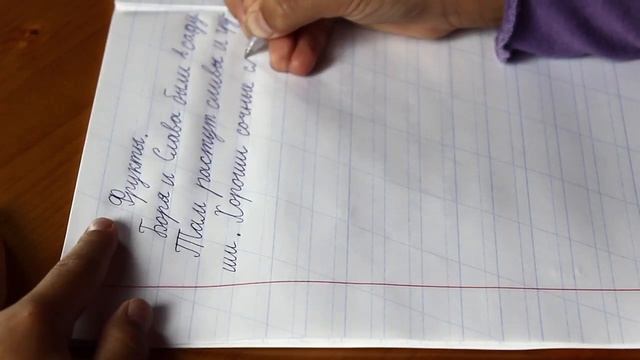 Фрукты.
Боря и Слава были в саду
Там растут сливы и гр
ши. Хороши сочные с